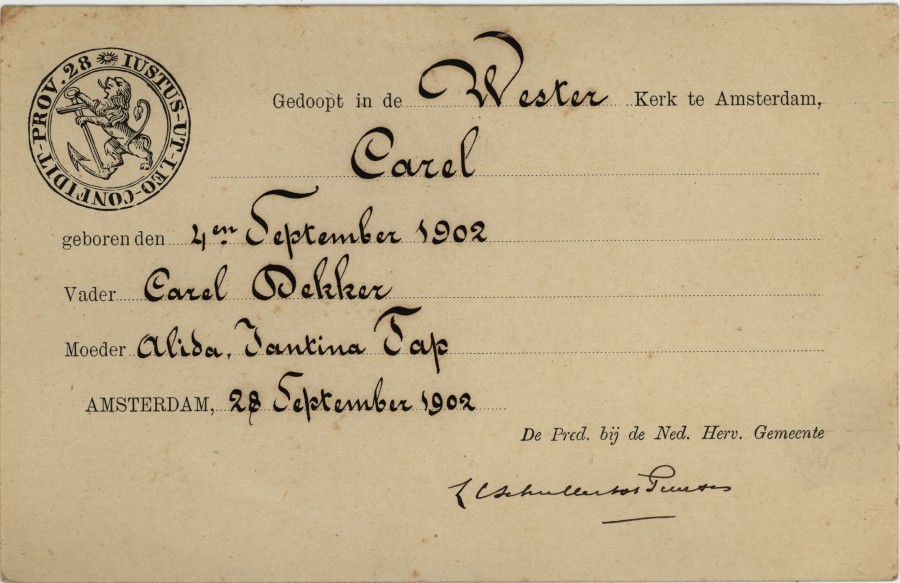 IUSTUS-UT-LEO-CONFIDIT-PROV. 28
Gedoopt in de Wester Kerk te Amsterdam,
Carel
geboren den 4en September 1902
Vader Carel Dekker
Moeder Alida, Jantina Tap
AMSTERDAM, 28 September 1902
De Pred. bij de Ned. Herv. Gemeente